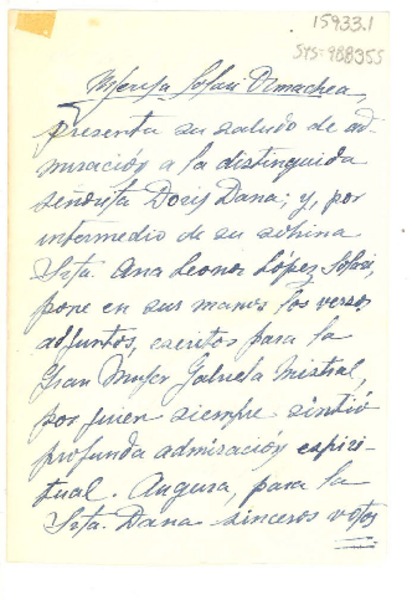 15933.1
SYS=988355
Sofari Dimachea,
presenta su saludo de ad-
miración a la distinguida
señorita Doris Dana; y, por
intermedio de su sobrina
Srta. Ana Leonor López Sofari,
pone en sus manos los versos
adjuntos, escritos para la
Gran Mujer Gabriela Mistral,
por quien siempre sintió
profunda admiración espiri-
tual. Augura, para la
Srta. Dana sinceros votos